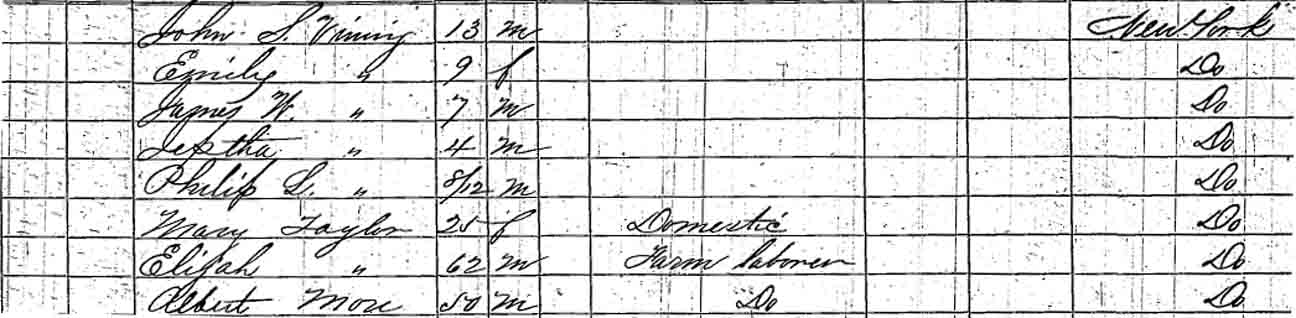 John S. Vining 13 m New York
Emily " 9 f Do
James W. " 7 m Do
Jeptha " 4 m Do
Philip L. " 8/12 m Do
Mary Taylor 25 f Domestic Do
Elijah " 62 m Farm laborer Do
Albert More 50 m Do Do